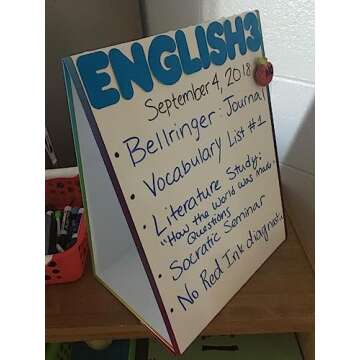 ENGLISH3
September 4, 2018
• Bellringer: Journal
• Vocabulary List #1
• Literature Study:
"How the World was made"
Questions
• Socratic Seminar
• No Red Ink diagnost.